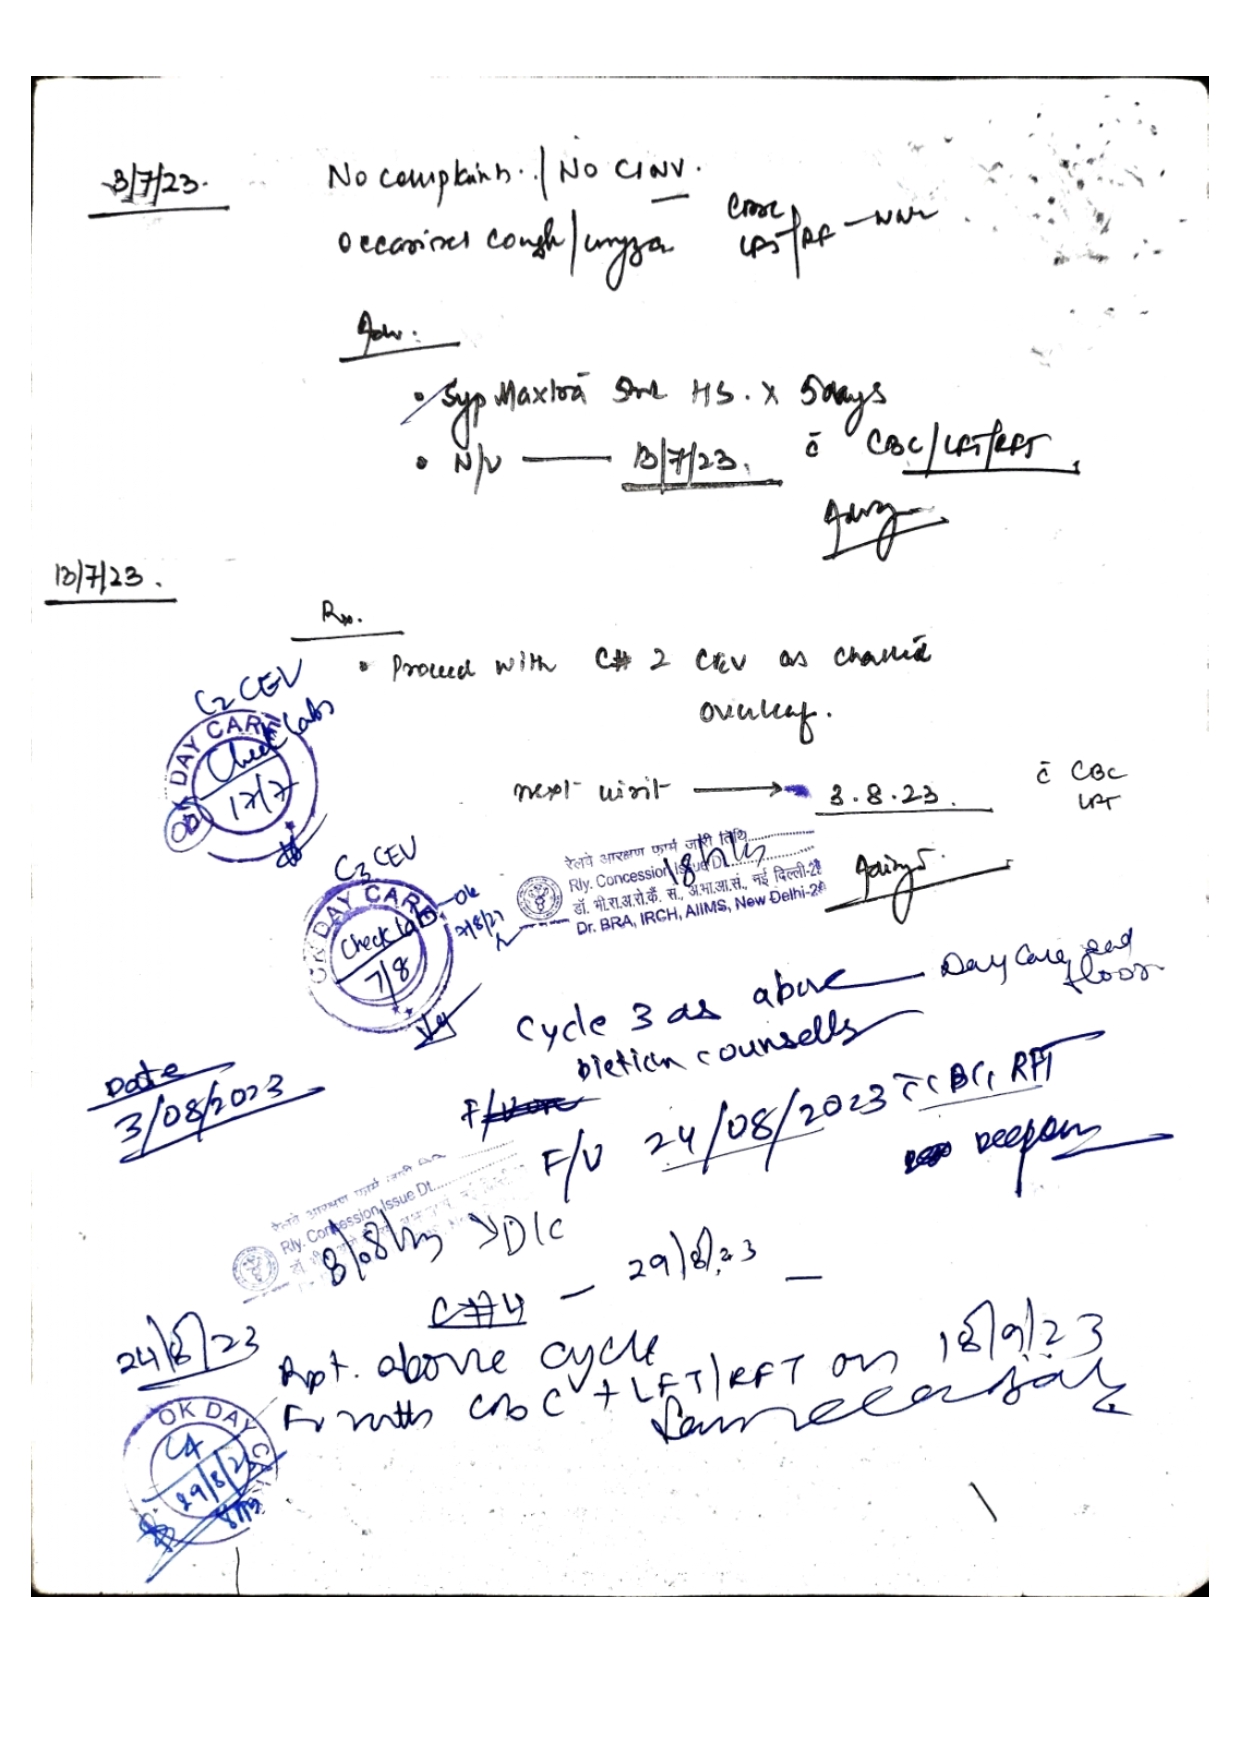 3/7/23.
No complaints. / No CINV.
occasional cough /
CBC
LFT/RFT — NNL
Adv.
• Syp Maxtra 5ml HS. x 5 days
• N/V — 13/7/23. c̄ CBC/LFT/RFT
13/7/23.
Rx.
• Proceed with C# 2 CEV as charted
overleaf.
C2 CEV
Check labs
OK DAY CARE
17/7
next visit → 3.8.23. c̄ CBC
LFT
रेलवे आरक्षण फार्म जारी तिथि
Rly. Concession Issue Dt.
डॉ. भी.रा.अ.रो.कैं. स., अ.भा.आ.सं., नई दिल्ली-29
Dr. BRA, IRCH, AIIMS, New Delhi-29
C3 CEV
OK DAY CARE
Check labs - ok
7/8
Cycle 3 as above — Day Care, 2nd
floor
Dietian counsells
Date
3/08/2023
F/U 24/08/2023 c̄ CBC, RFT
रेलवे आरक्षण फार्म जारी
Rly. Concession Issue Dt.
8/8/23 → D/C
C#4 — 29/8/23 —
24/8/23
Rpt. above cycle
F/U with CBC + LFT/RFT on 18/9/23
OK DAY CA
C4
29/8/23